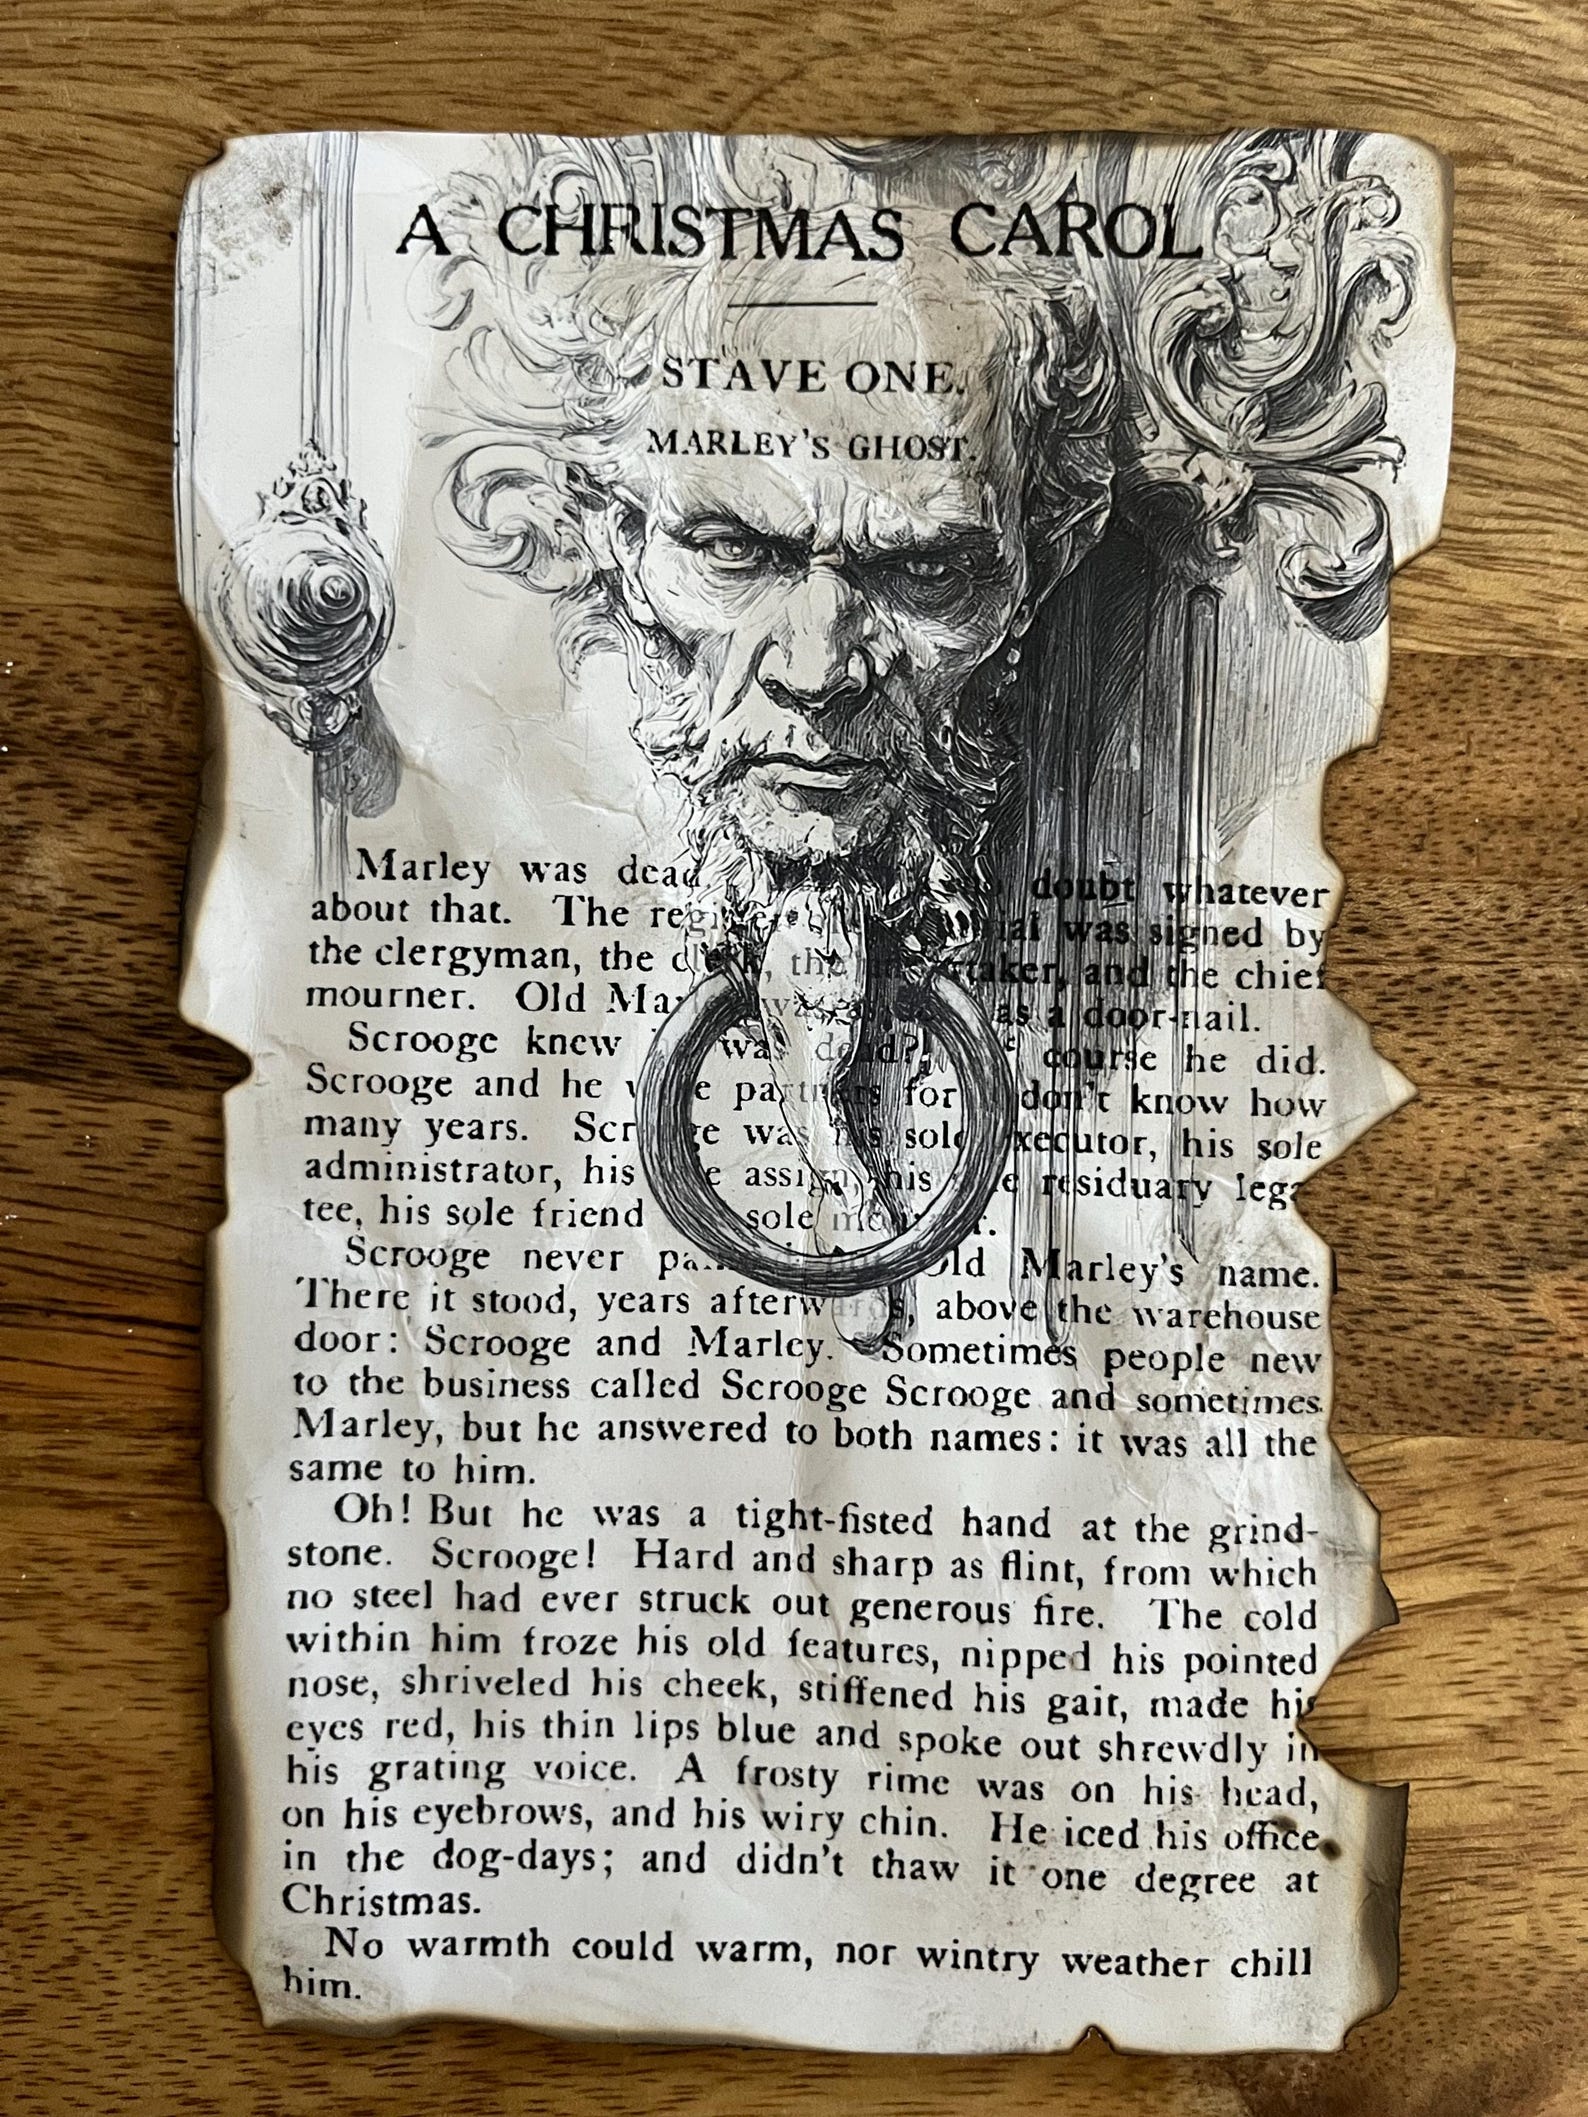 A CHRISTMAS CAROL
STAVE ONE.
MARLEY'S GHOST.
Marley was dead doubt whatever
about that. The register was signed by
the clergyman, the clerk, the undertaker, and the chief
mourner. Old as a door-nail.
Scrooge knew was dead? course he did.
Scrooge and he partners for don't know how
many years. Scrooge was his sole executor, his sole
administrator, his assign, his residuary lega-
tee, his sole friend sole
Scrooge never Old Marley's name.
There it stood, years afterwards, above the warehouse
door: Scrooge and Marley. Sometimes people new
to the business called Scrooge Scrooge and sometimes
Marley, but he answered to both names: it was all the
same to him.
Oh! But he was a tight-fisted hand at the grind-
stone. Scrooge! Hard and sharp as flint, from which
no steel had ever struck out generous fire. The cold
within him froze his old features, nipped his pointed
nose, shriveled his cheek, stiffened his gait, made his
eyes red, his thin lips blue and spoke out shrewdly in
his grating voice. A frosty rime was on his head,
on his eyebrows, and his wiry chin. He iced his office
in the dog-days; and didn't thaw it one degree at
Christmas.
No warmth could warm, nor wintry weather chill
him.